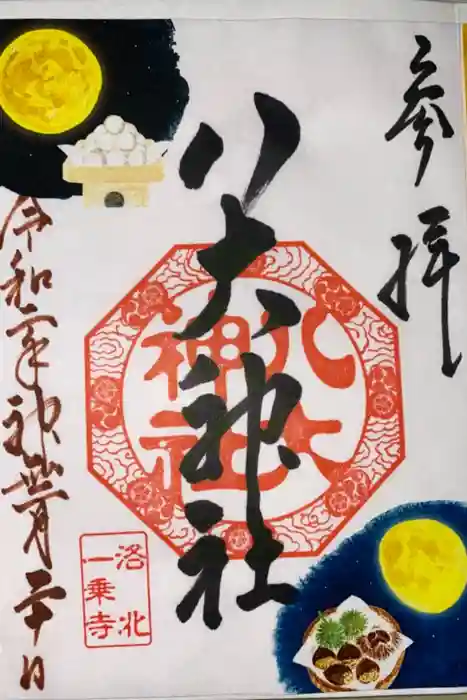 参拝
八大神社
八大
神社
洛北
一乗寺
令和 年 月二十日